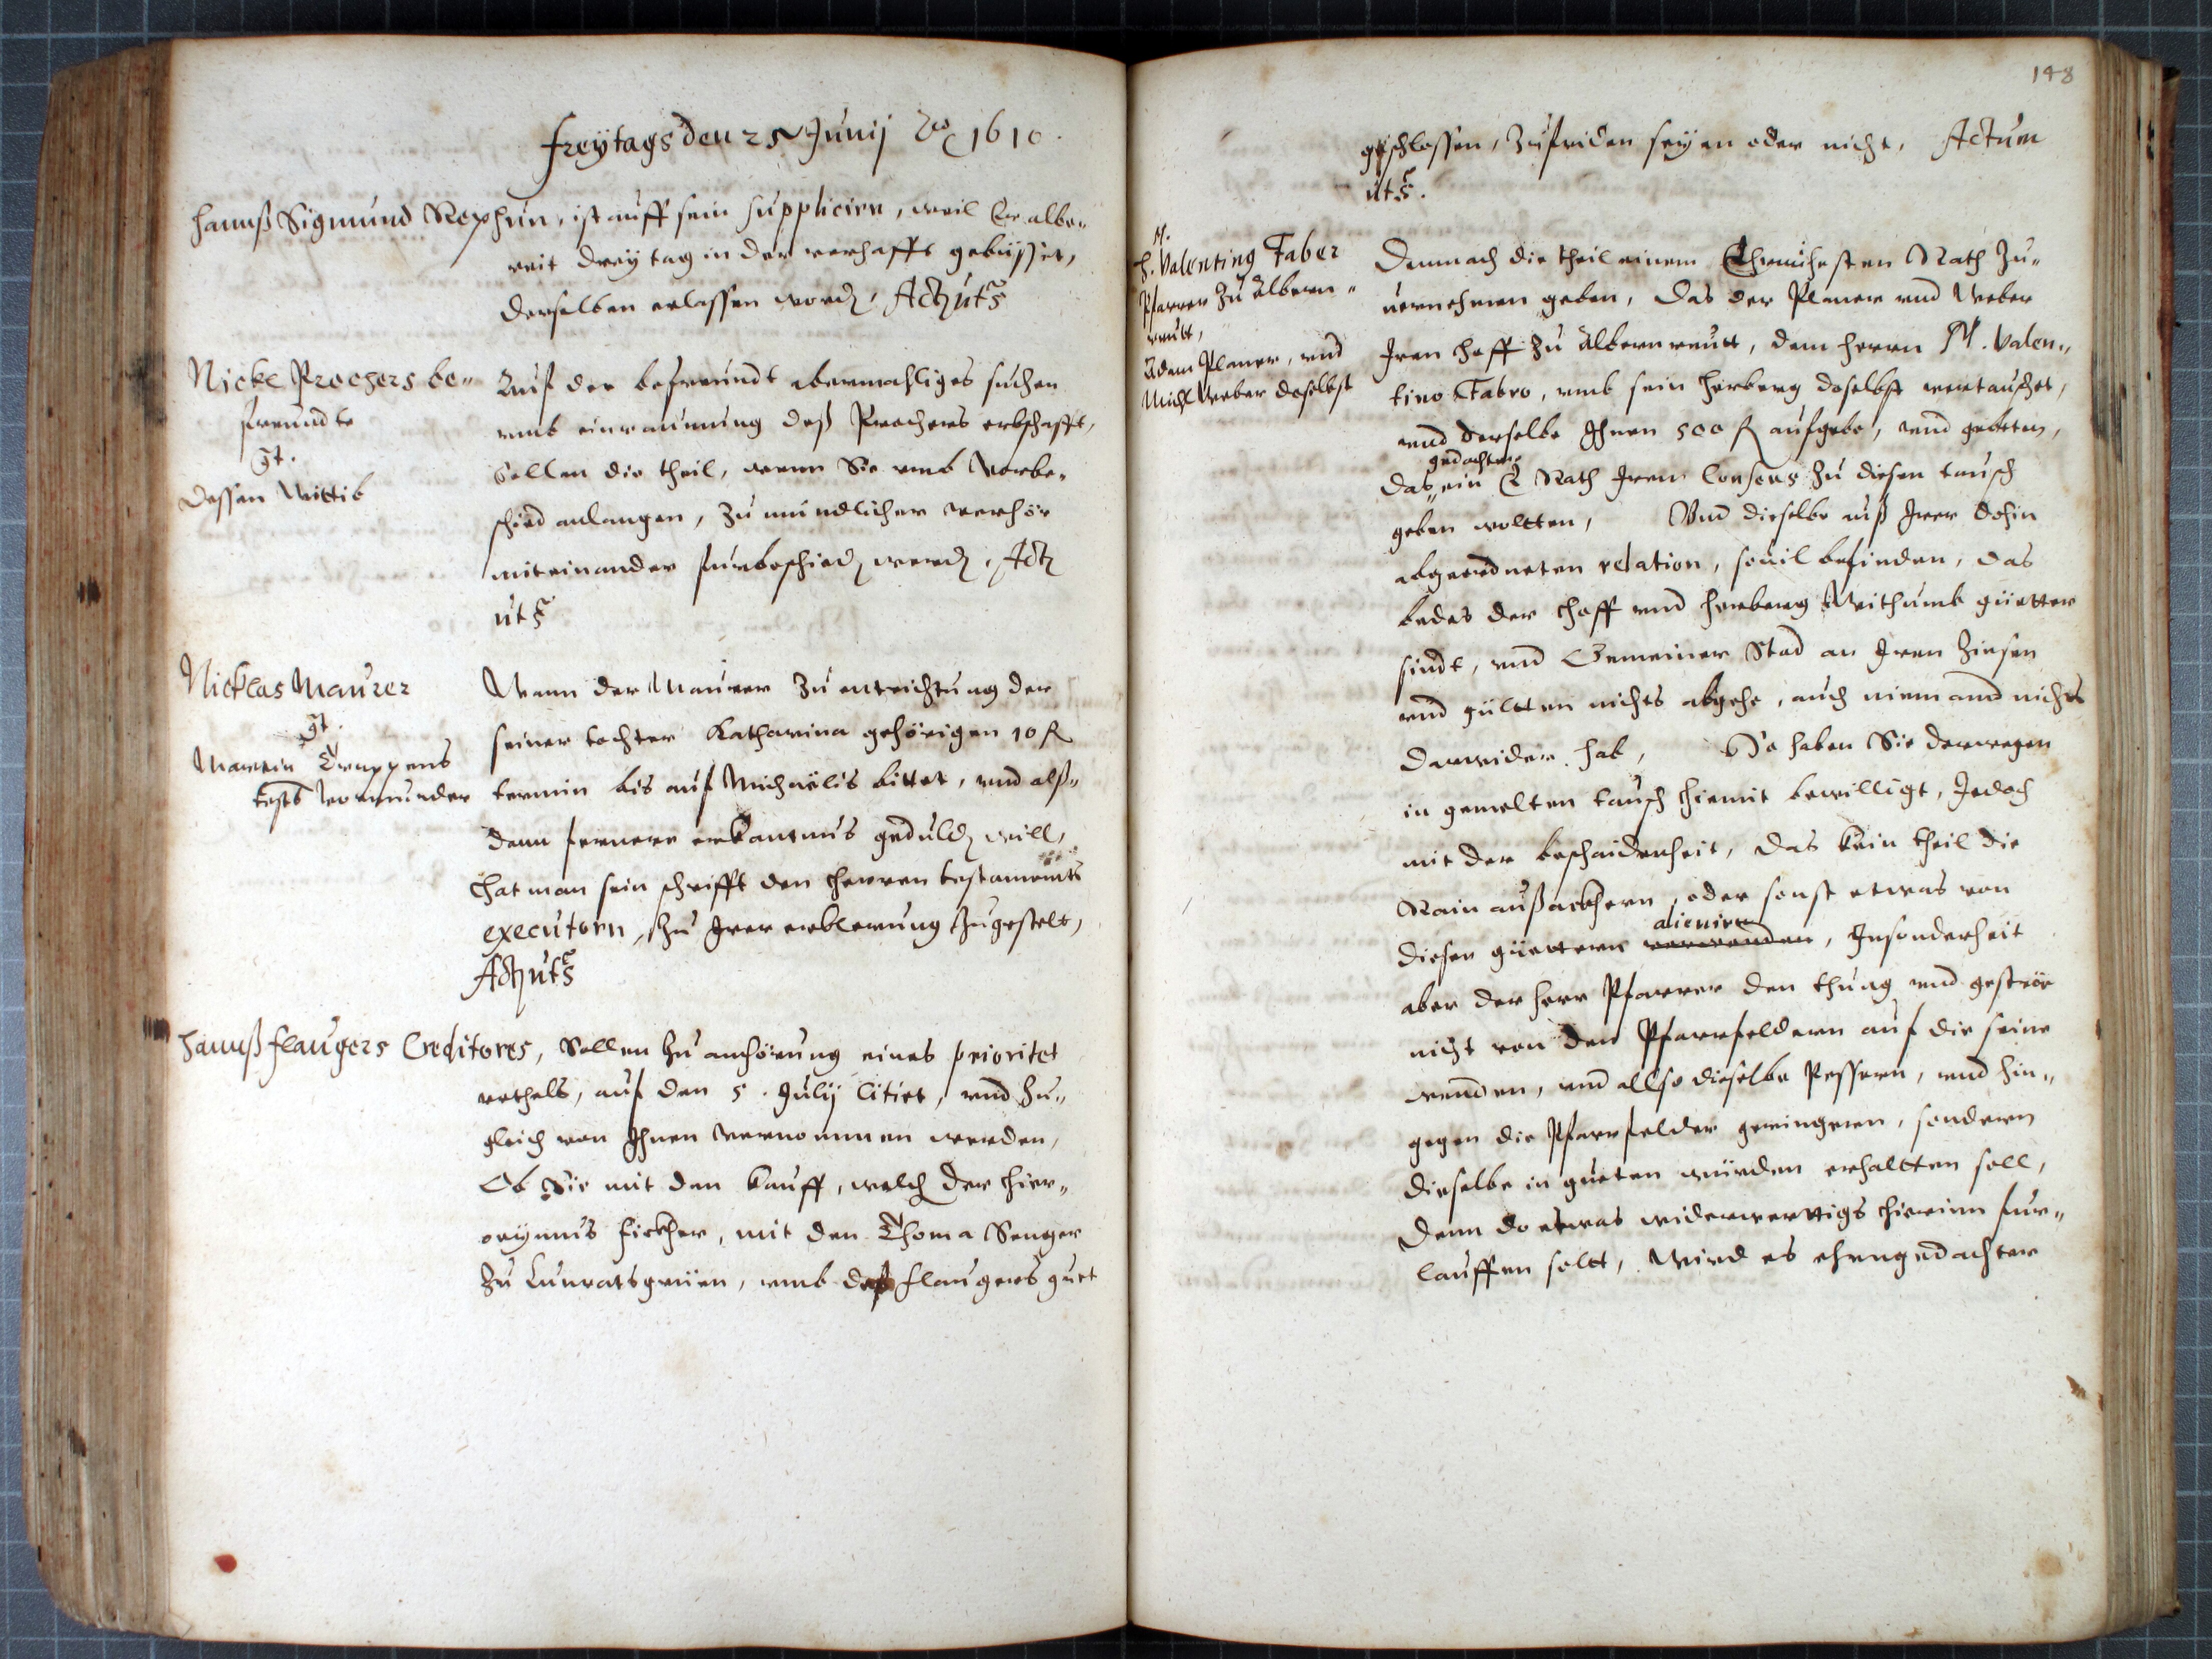 Freÿtags den 25 Junij Ao 1610.
Hannß Sigmund Rephun, ist auff sein supplicirn, weil Er albe„
reit dreÿ tag in der verhafft gebüsset,
derselben erlassen word, Act uts
Nickl Prechers be„
freundte
gt.
dessen Wittib
Auf der befreundt abermahliges suchen
vmb einraumung deß Prechers erbschafft,
sollen die theil, wenn Sie vmb Vorbe„
schied anlangen, zu mündlicher verhör
miteinander furbeschied werd, Act
uts
Nicklas Maurer
gt.
Martin Truppens
tests Vormunder
Wann der Maurer zu entrichtung der
seiner tochter Katharina gehörigen 10 fl
termin bis auf Michaëlis bittet, vnd alß„
dann fernere erkantnus geduld will,
hat man sein schrifft den Herren testaments
executorn, zu Irer erklerung zugestelt,
Act uts
Hannß Flaugers Creditores, sollen zu anhörung eines prioritet
vrthels, auf den 5. Julij Citirt, vnd zu„
gleich von Ihnen vernommen werden,
Ob Sie mit den kauff, welch der Hier„
onÿmus Fickher, mit den Thoma Senger
zu Cunratsgrüen, vmb deß Flaugers guet
148
geschlossen, zufriden seÿen oder nicht, Actum
uts.
M.
H. Valenting Faber
Pfarrer zu Albern„
reutt,
Adam Planer, vnd
Michl Weber daselbst
Demnach die theil einem Ehrnuhesten Rath zu„
uernehmen geben, das der Planer vnd Weber
Iren hoff zu Albernreutt, dem herrn M. Valen„
tino Fabro, vmb sein herberg daselbst vertauschet,
vnd derselbe Ihnen 500 fl aufgebe, vnd gebetten,
gedachter
das ein E Rath Iren Consens zu diesen tausch
geben woltten, Vnd dieselbe auß Irer dahin
abgeordneten relation, souil befinden, das
bedes der hoff vnd herberg Withumb güetter
sindt, vnd Gemeiner Stad an Iren zinsen
vnd gültten nichts abgehe, auch niemand nichts
darwider hab, So haben Sie derwegen
in gemelten tausch hiemit bewilligt, Jedoch
mit der beschaidenheit, das kein theil die
Rain außackhern, oder sonst etwas von
alienirn
diesen güettern verwenden, Insonderheit
aber der herr Pfarrer den thung vnd geströe
nicht von den Pfarrfeldern auf die seine
wenden, vnd allso dieselbe Pessern, vnd hin„
gegen die Pfarrfelder geringern, sondern
dieselbe in gueten würden erhaltten soll,
Denn do etwas widerwerttigs hierinn für„
lauffen soltt, Wird es ehrngedachter